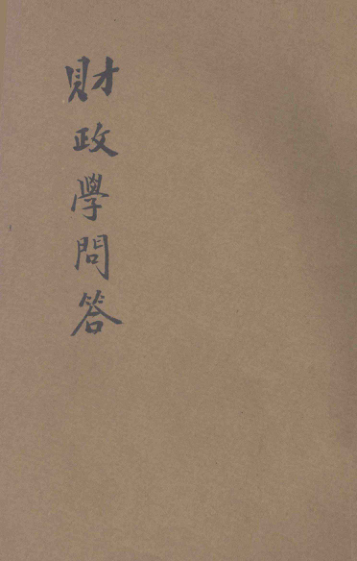 財政學問答